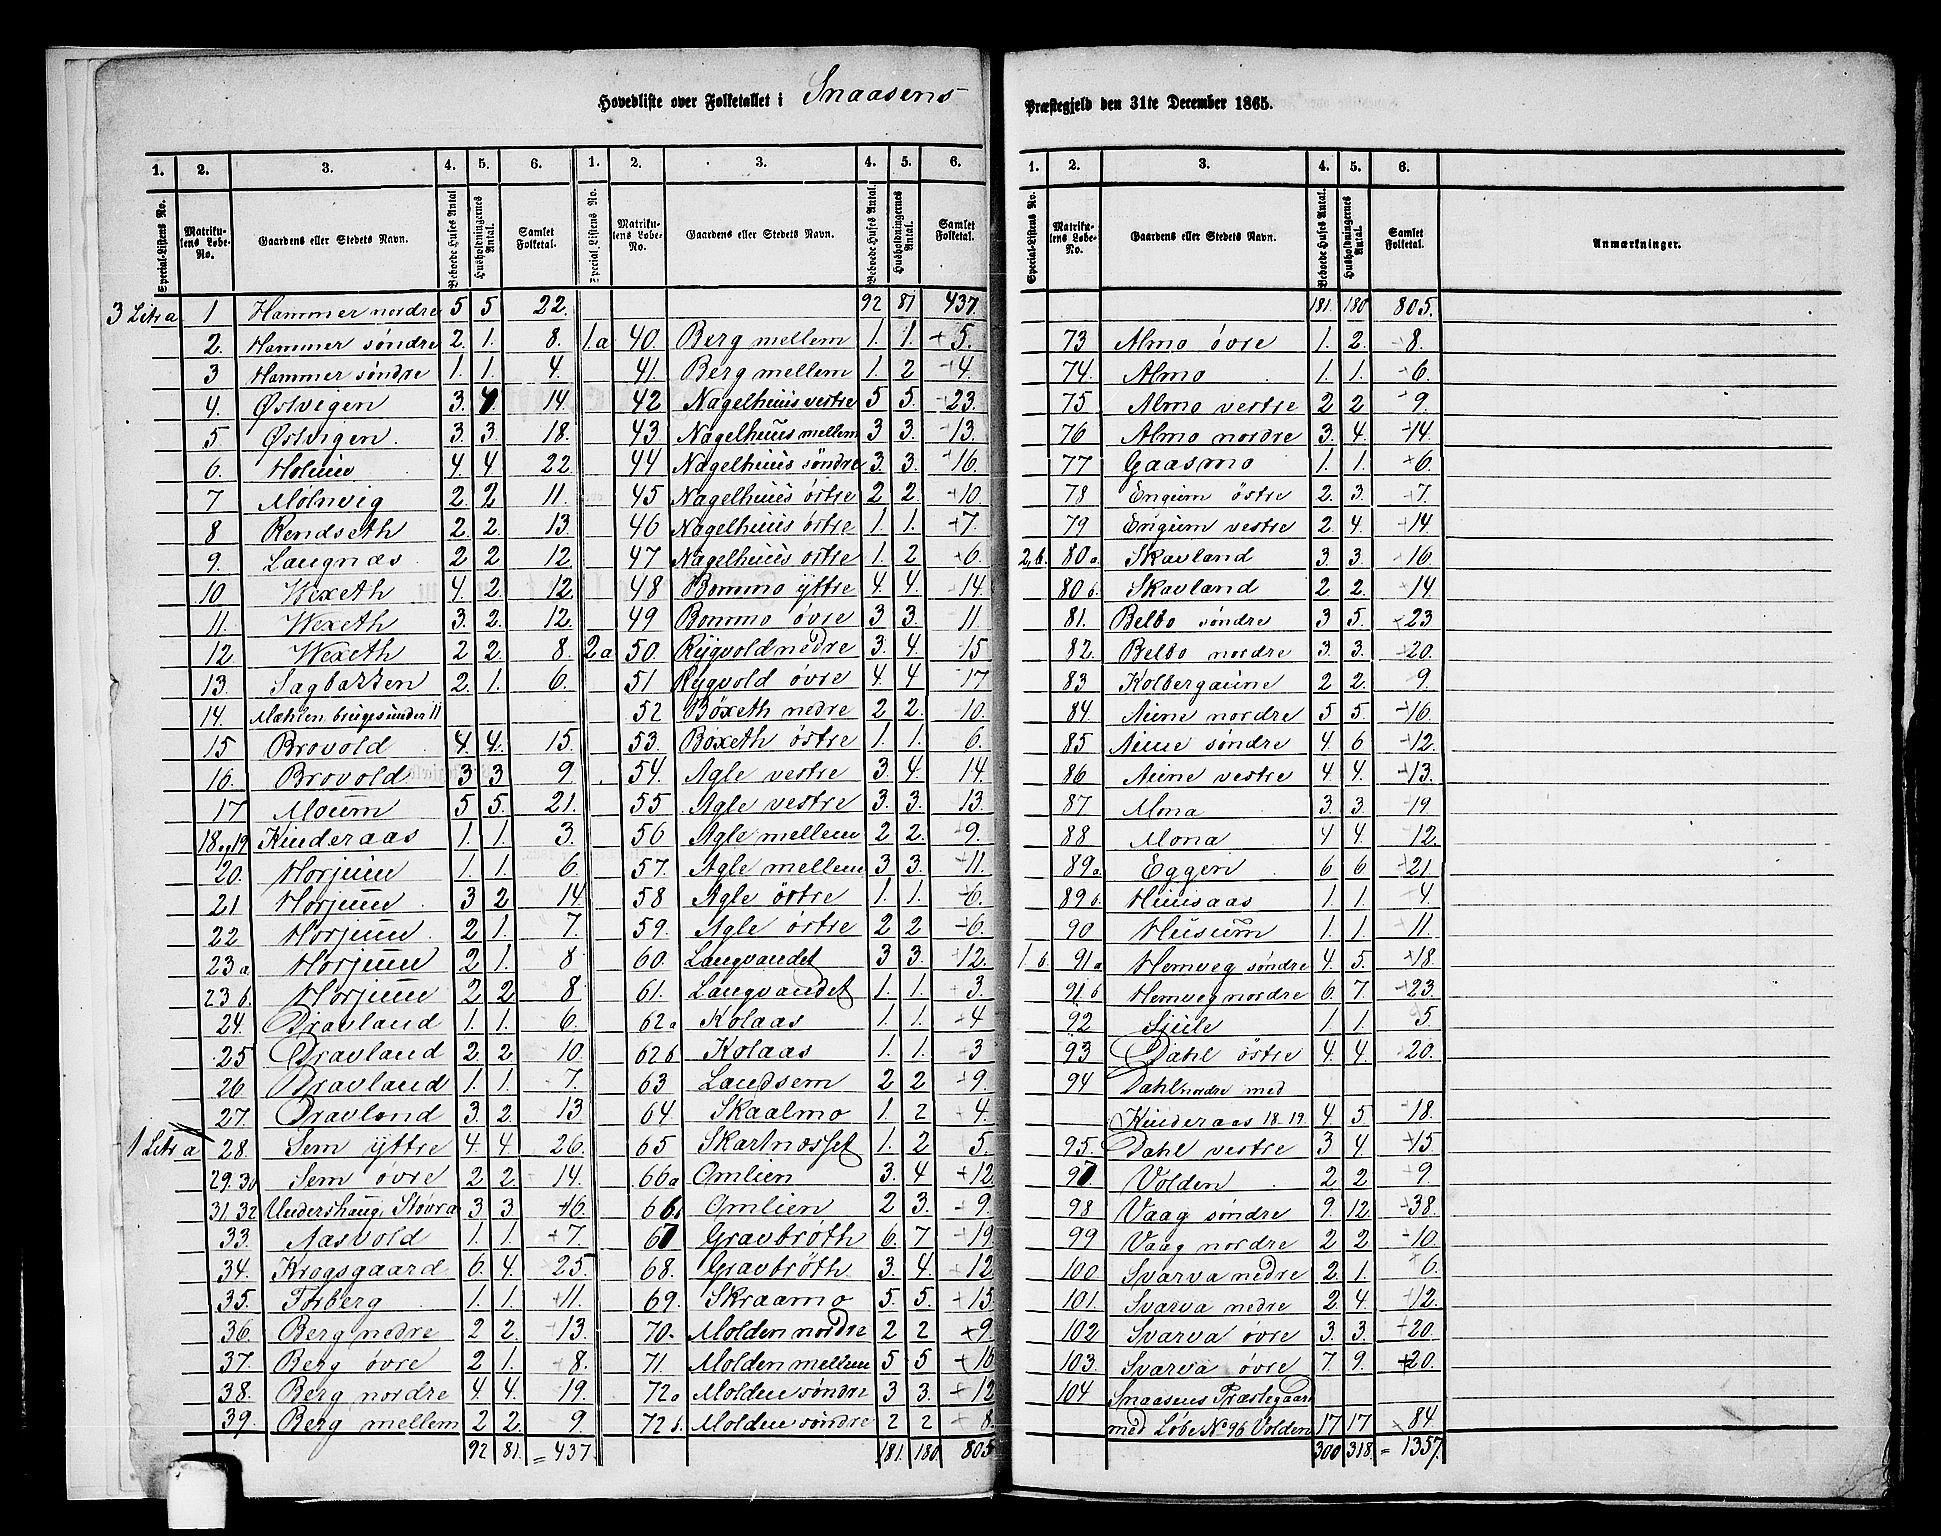 Hovedliste over Folketallet i Snaasens Præstegjeld den 31te December 1865.
1. 2. 3. 4. 5. 6. 1. 2. 3. 4. 5. 6.
Special-Listens No. Matrikulens Løbe-No. Gaardens eller Stedets Navn. Beboede Huses Antal Husholdningernes Antal. Samlet Folketal. Special-Listens No. Matrikulens Løbe-No. Gaardens eller Stedets Navn. Beboede Huses Antal. Husholdningernes Antal. Samlet Folketal.
3 Litr a 1 Hammer nordre 5 5 22. 92 81 437.
2. Hammer søndre 2. 1. 8. 1.a 40. Berg mellem 1. 1. +5.
3 Hammer søndre 1. 1. 4. 41. Berg mellem 1. 2 +4.
4. Østvegen 3. 4. 14. 42 Nagelhuus vestre 5 5. 23.
5. Østvigen. 3. 3. 18. 43 Nagelhuus mellem 3 3. 13.
6. Holum 4. 4 22 44 Nagelhuus søndre 3. 3. 16.
7 Mølnvig 2. 2 11. 45 Nagelhuus östre 2 2. 10.
8 Rendseth 2. 2. 13. 46 Nagelhuus östre 1. 1. +7.
9. Langnæs 2 2 12. 47 Nagelhuus ostre 1. 2 6.
10 Wexeth 4. 2 12. 48 Bommo yttre 4. 4. 14.
11. Wexeth 3. 2. 12. 49 Bommo øvre 3 3. 11.
12 Wexeth 2 2. 8. 2a 50. Rygvold nedre 3. 4. 15
13. Sagbakken 2. 1. 6. 51 Rygvold øvre 4. 4 17
14. Mæhlen bruges under 11 52 Böxeth nedre 2 2. 10.
15 Brovold 4. 4. 15. 53. Boxeth östre 1. 1. 6.
16. Brovold. 3 3 9. 54. Agle vestre 3. 4. 14.
17 Moum 5 5. 21. 55 Agle vestre 3. 3. 13.
18 og 19 Kinderaas 1. 1. 3. 56 Agle mellem 2 2. 9.
20. Horjem 1. 1. 6. 57. Agle mellem 3 3. 11.
21 Horjem 3 2 14 58 Agle östre 1. 1. 6.
22 Horjem. 2 1. 7. 59. Agle östre 2 2 6.
23a Horjem 2 1. 8 60. Langvandet 3 3. 12.
23 b. Horjem 2 2 8 61. Langvandet 1. 1. 3.
24. Dravland 1. 1. 6. 62a Kolaas 1. 1. 4
25 Dravland 2. 2 10. 62b Kolaas 1. 1. 3
26 Dravland 1. 1. 7. 63 Landsem 2 2 9.
27. Dravland 3. 2. 13 64. Skaalmo 1. 2 4.
1 Litr a 28. Sem yttre 4. 4. 26. 65 Skartnæsset 1. 2 5.
29.30 Sem øvre 2 2. 14. 66a Omlien 3. 4 +12
31.32 Undershaug, Støvra 3 3 16. 66b Omlien 2 3. 9.
33. Aasvold 1. 1. +7 67 Gravbrøth 6. 7 19.
34. Krogsgaard 6. 4. 25. 68. Gravbröth 3. 4. 12
35. Torberg 1. 1. 11. 69. Skraamo 5. 5. 15
36. Berg nedre 2 2. 13. 70. Molden nordre 2 2 +9
37. Berg øvre 2 1. 8. 71. Molden mellem 5 5 +18
38. Berg nordre 4. 4. 19. 72a Molden søndre 3 3. +12
39. Berg mellem 2 2. 9. 72b. Molden søndre 2 2 8.
92 81. = 437. 181. 180. 805
1. 2. 3. 4. 5. 6.
Special-Listens No. Matrikulens Løbe-No. Gaardens eller Stedets Navn. Beboede Huses Antal. Husholdningernes Antal. Samlet Folketal. Anmærkninger.
181. 180 805.
73 Almo øvre 1. 2. 8.
74. Almo 1. 1. 6.
75 Almo vestre 2 2 9.
76 Almo nordre 3. 4. 14.
77 Gaasmo 1. 1. 6.
78 Engum östre 2. 3. 7.
79 Engum vestre 2. 4. 14.
2.b. 80a Skavland 3. 3. 16
80b. Skavland 2 2. 14.
81. Belbo søndre 3 5. 23
82. Belbo nordre 3. 3. 20.
83 Kolbergaune 2 2. 9.
84 Aune nordre 5 5. 16.
85 Aune søndre 4. 6 12.
86 Aune vestre 4. 4. 13.
87 Mona 3. 3. 19.
88 Mona 4 4. 12.
89a Eggen 6 6 21.
89b. Huusaas 1. 1. 4.
90 Husum 1. 1. 11.
1.b. 91a Hemveg søndre 4. 5. 18.
91b Hemveg nordre 6. 7. 23.
92 Sjule 1. 1. 5.
93 Dahl östre 4. 4. 20.
94 Dahl nordre med
Kinderaas 18.19. 4. 5 18.
95. Dahl vestre 3 4. 15.
97 Volden 2 2 9.
98 Vaag søndre 9. 12. 38.
99 Vaag nordre 2 2 10.
100 Svarva nedre 2. 1. 6.
101. Svarva nedre 2. 4. 12.
102 Svarva øvre 3. 3. 20.
103. Svarva øvre 7. 9. 20.
104 Snaasens Præstegaard
med Løbe No 96 Volden 17 17 84
300 318 = 1357.